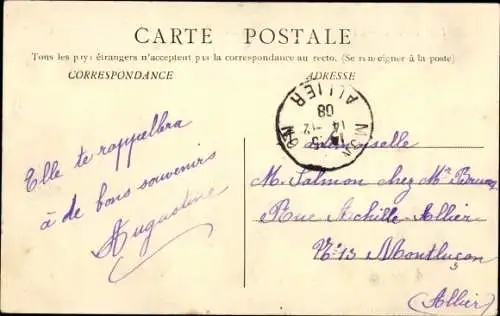 CARTE POSTALE
Tous les pays étrangers n'acceptent pas la correspondance au recto. (Se renseigner à la poste)
CORRESPONDANCE
ADRESSE
Elle te rappellera
à de bons souvenirs
Augustine
ALLIER
14 -12
08
Mademoiselle
M. Salmon chez Mr
Rue Achille Allier
No 13 Montluçon
(Allier)